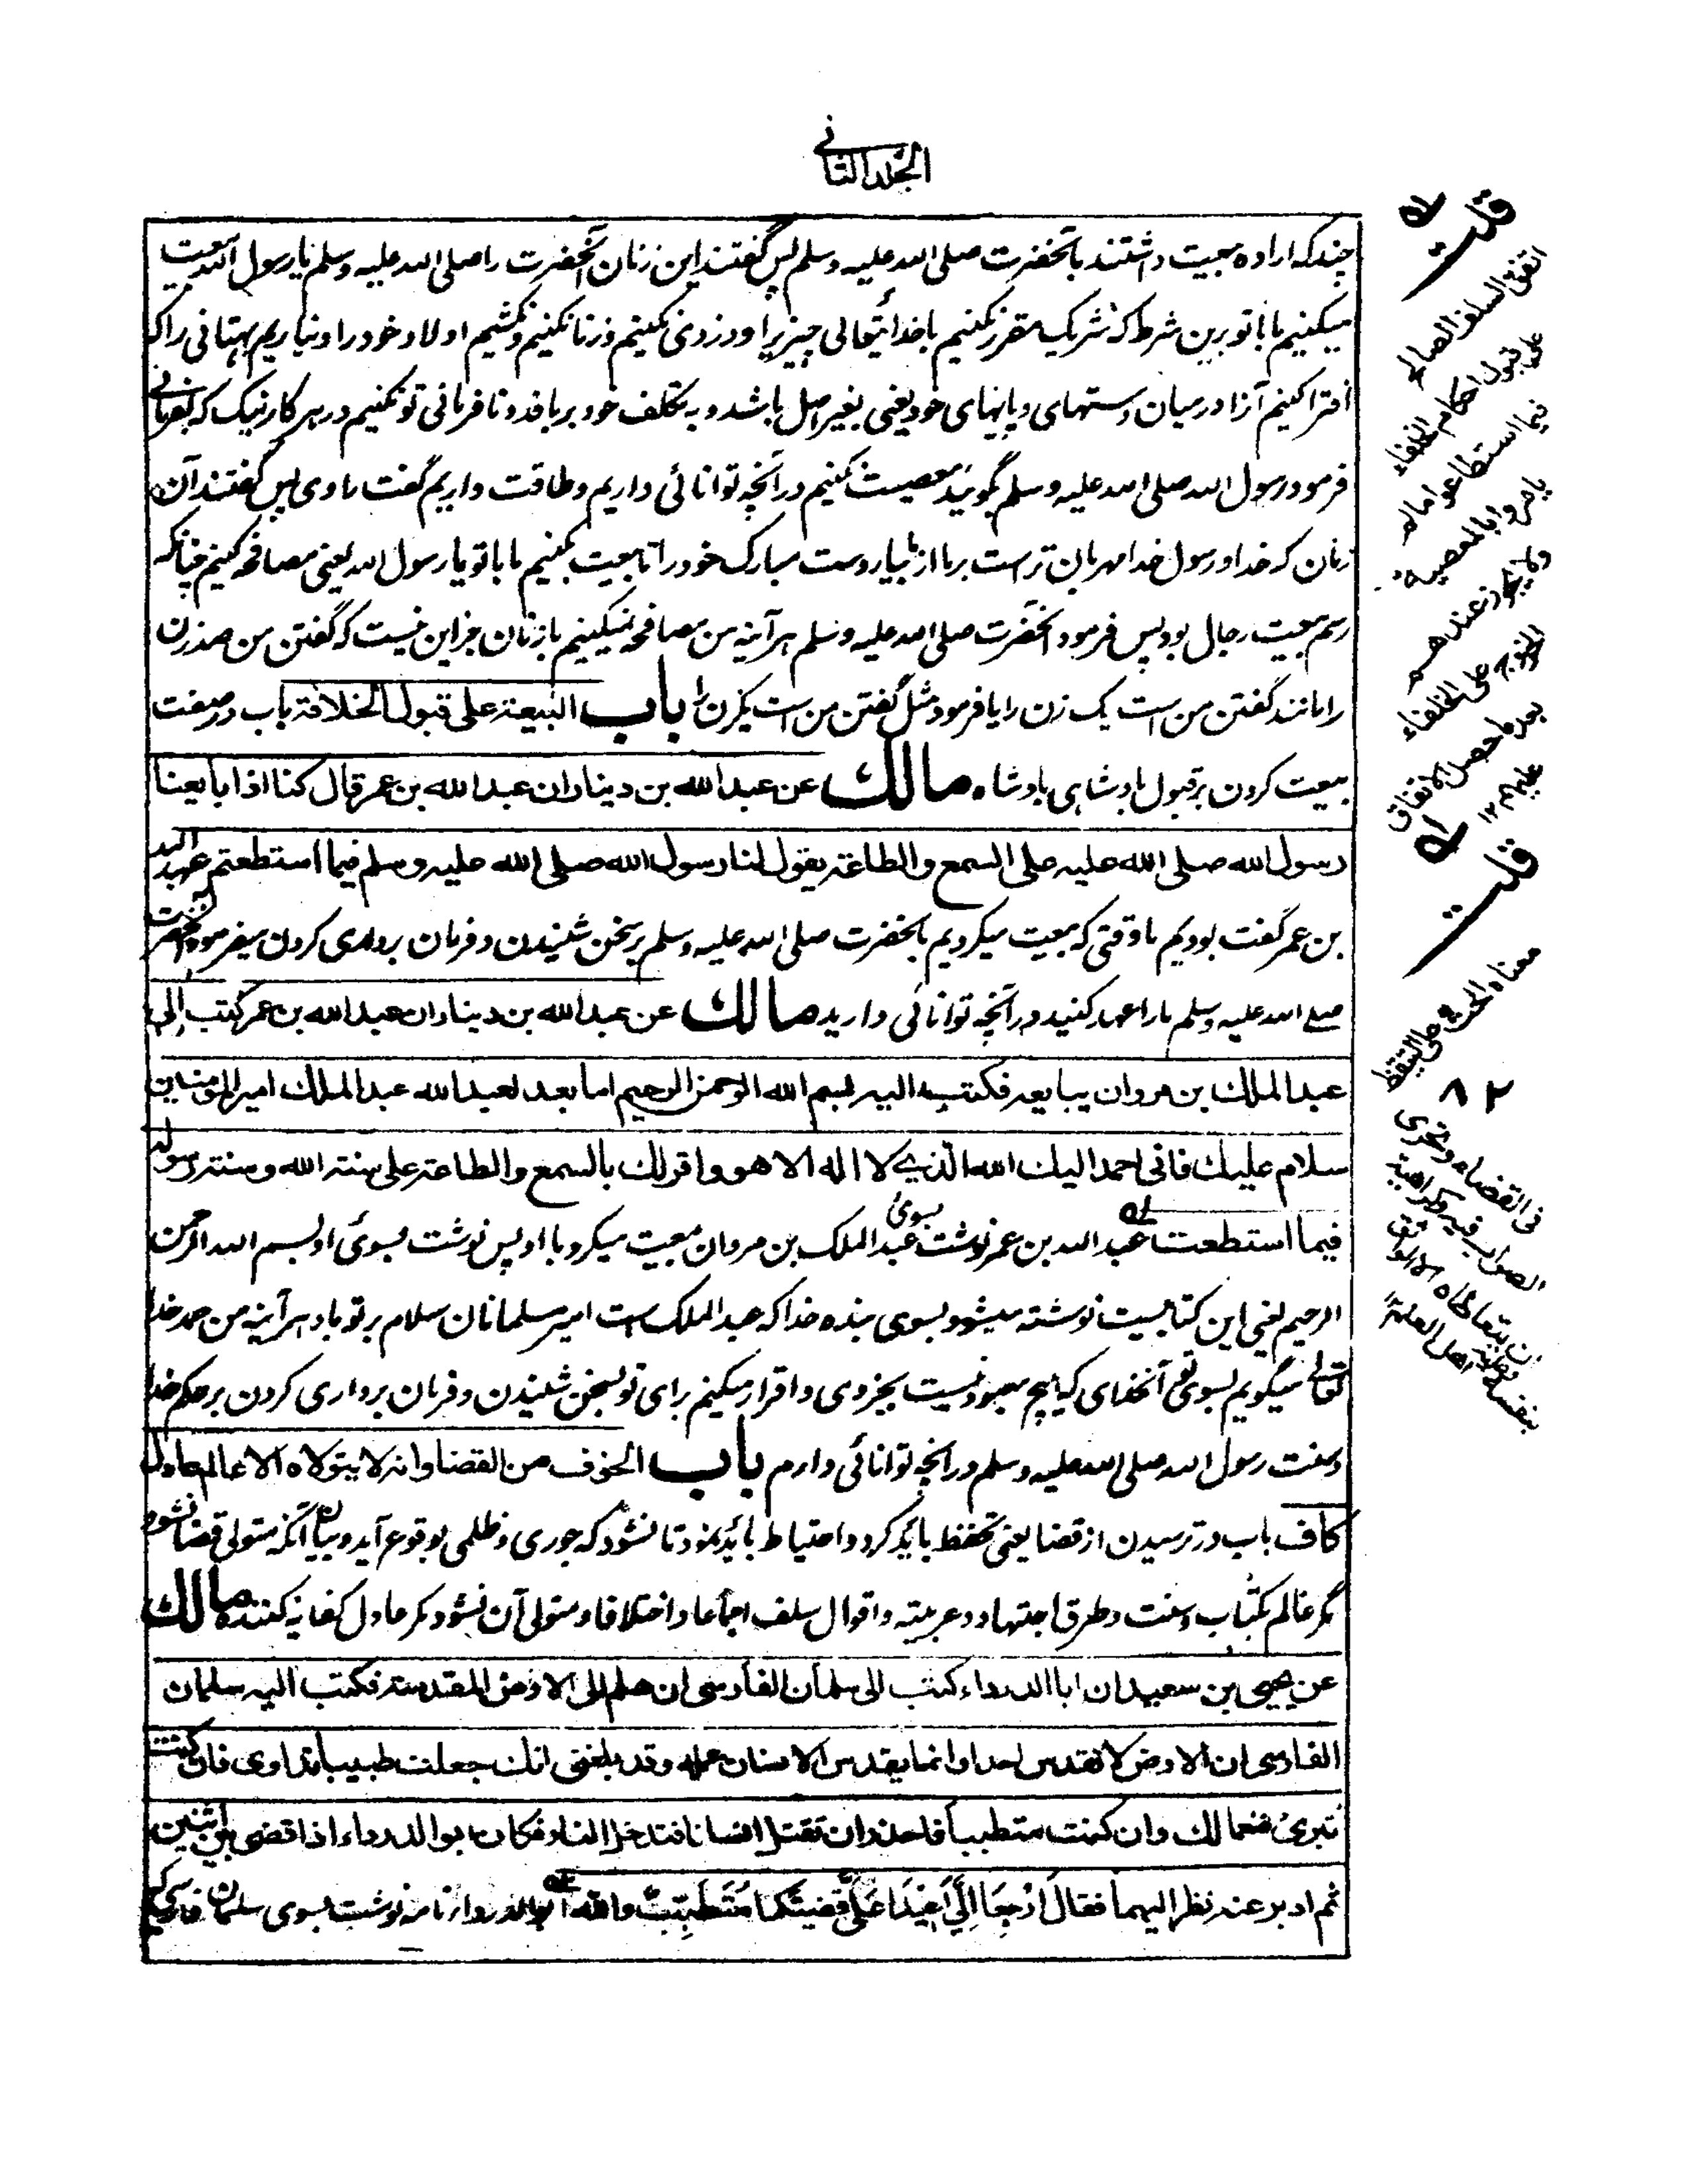 الجلد الثانی
چند که اراده بیعت داشتند بآنحضرت صلی الله علیه وسلم پس گفتند این زنان آنحضرت را صلی الله علیه وسلم یا رسول الله بیعت
میکنیم ما با تو برین شرط که شریک مقرر نکنیم با خدا تعالی چیزیرا و دزدی نکنیم و زنا نکنیم و نکشیم اولاد خود را و نیاریم بهتانی را که
افترا کنیم آنرا در میان دستهای و پایهای خود یعنی بغیر اصل باشد و به تکلف خود بربافد و نافرمانی تو نکنیم در هر کار نیک که بفرمائی
فرمود رسول الله صلی الله علیه وسلم بگوئید معصیت نکنیم در آنچه توانائی داریم و طاقت داریم گفت راوی پس گفتند آن
زنان که خدا و رسول خدا مهربان تر است بر ما از ما بیار دست مبارک خود را تا بیعت کنیم ما با تو یا رسول الله یعنی مصافحه کنیم چنانکه
رسم بیعت رجال بود پس فرمود آنحضرت صلی الله علیه وسلم هر آینه من مصافحه نمیکنیم با زنان جز این نیست که گفتن من صد زن
را مانند گفتن من است یک زن را یا فرمود مثل گفتن من است یکزن را باب البیعة علی قبول الخلافة باب در صفت
بیعت کردن بر قبول بادشاهی بادشاه مالك عن عبد الله بن دینار ان عبد الله بن عمر قال کنا اذا بایعنا
رسول الله صلی الله علیه علی السمع والطاعة یقول لنا رسول الله صلی الله علیه وسلم فیما استطعتم عبد الله
بن عمر گفت بودیم ما وقتی که بیعت میکردیم بآنحضرت صلی الله علیه وسلم بر سخن شنیدن و فرمان برداری کردن میفرمود آنحضرت
صلے الله علیه وسلم ما را عهد کنید در آنچه توانائی دارید مالك عن عبد الله بن دینار ان عبد الله بن عمر کتب الی
عبد الملك بن مروان یبایعه فکتب الیه بسم الله الرحمن الرحیم اما بعد لعبد الله عبد الملك امیر المومنین
سلام علیك فانی احمد الیك الله الذی لا اله الا هو واقر لك بالسمع والطاعة علی سنة الله وسنة رسوله
فیما استطعت عبد الله بن عمر نوشت بسوئ عبد الملک بن مروان بیعت میکرد با او پس نوشت بسوئ او بسم الله الرحمن
الرحیم یعنی این کتابیست نوشته میشود بسوی بنده خدا که عبد الملک است امیر مسلمانان سلام بر تو باد هر آینه من حمد خدا
تعالے میگویم بسوی تو آنخدای که هیچ معبود نیست بجز وی و اقرار میکنم برای تو بسخن شنیدن و فرمان برداری کردن بر حکم خدا
و سنت رسول الله صلی الله علیه وسلم در آنچه توانائی دارم باب الخوف من القضا وانه لا یتولاه الا عالم عادل
کاف باب در ترسیدن از قضا یعنی تحفظ باید کرد و احتیاط باید نمود تا نشود که جوری و ظلمی بوقوع آید و بیان آنکه متولی قضا نشود
مگر عالم بکتاب و سنت و طرق اجتهاد و عربیته و اقوال سلف اجماعا و اختلافا و متولی آن نشود مگر عادل کفایه کننده مالك
عن یحیی بن سعید ان ابا الدرداء کتب الی سلمان الفارسی ان هلم الی الارض المقدسة فکتب الیه سلمان
الفارسی ان الارض لا تقدس احدا وانما یقدس الانسان عمله وقد بلغنی انك جعلت طبیبا تداوی فان کنت
تبرئ فنعما لك وان کنت متطببا فاحذر ان تقتل انسانا فتدخل النار فکان ابو الدرداء اذا قضی بین اثنین
ثم ادبر عنه نظر الیهما فقال اِرْجِعَا اِلَیَّ اَعِیْدَا عَلَیَّ قضیتکما مُتَطَبِّبٌ والله ابو الدرداء نامه نوشت بسوی سلمان فارسی که
قلت
اتفق السلف الصالح
علی قبول احکام الخلفاء
فیما استطاعوا ما لم
یامروا بالمعصیة
ولا یجوز عندهم
الخروج علی الخلفاء
بعد ما حصل الاتفاق
علیهم ۱۲
قلت
معناه الحث علی التیقظ
فی القضاء وتحری
الصواب فیه وکراهیة
ان یتعاطاه الا الواثق
بنفسه